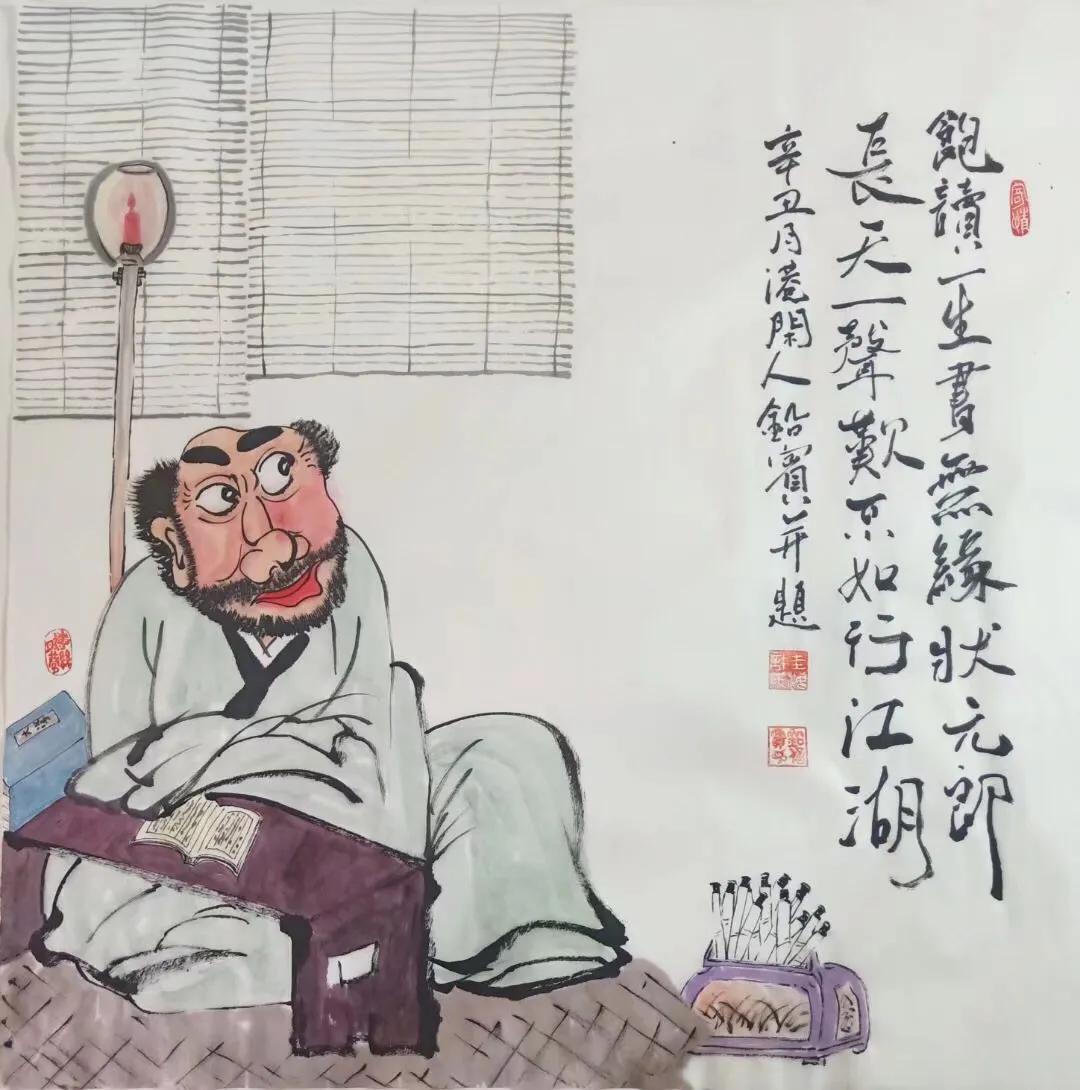 飽讀一生書無緣狀元郎
長天一聲歎不如行江湖
辛丑月港閑人鉛賓并題
寄情